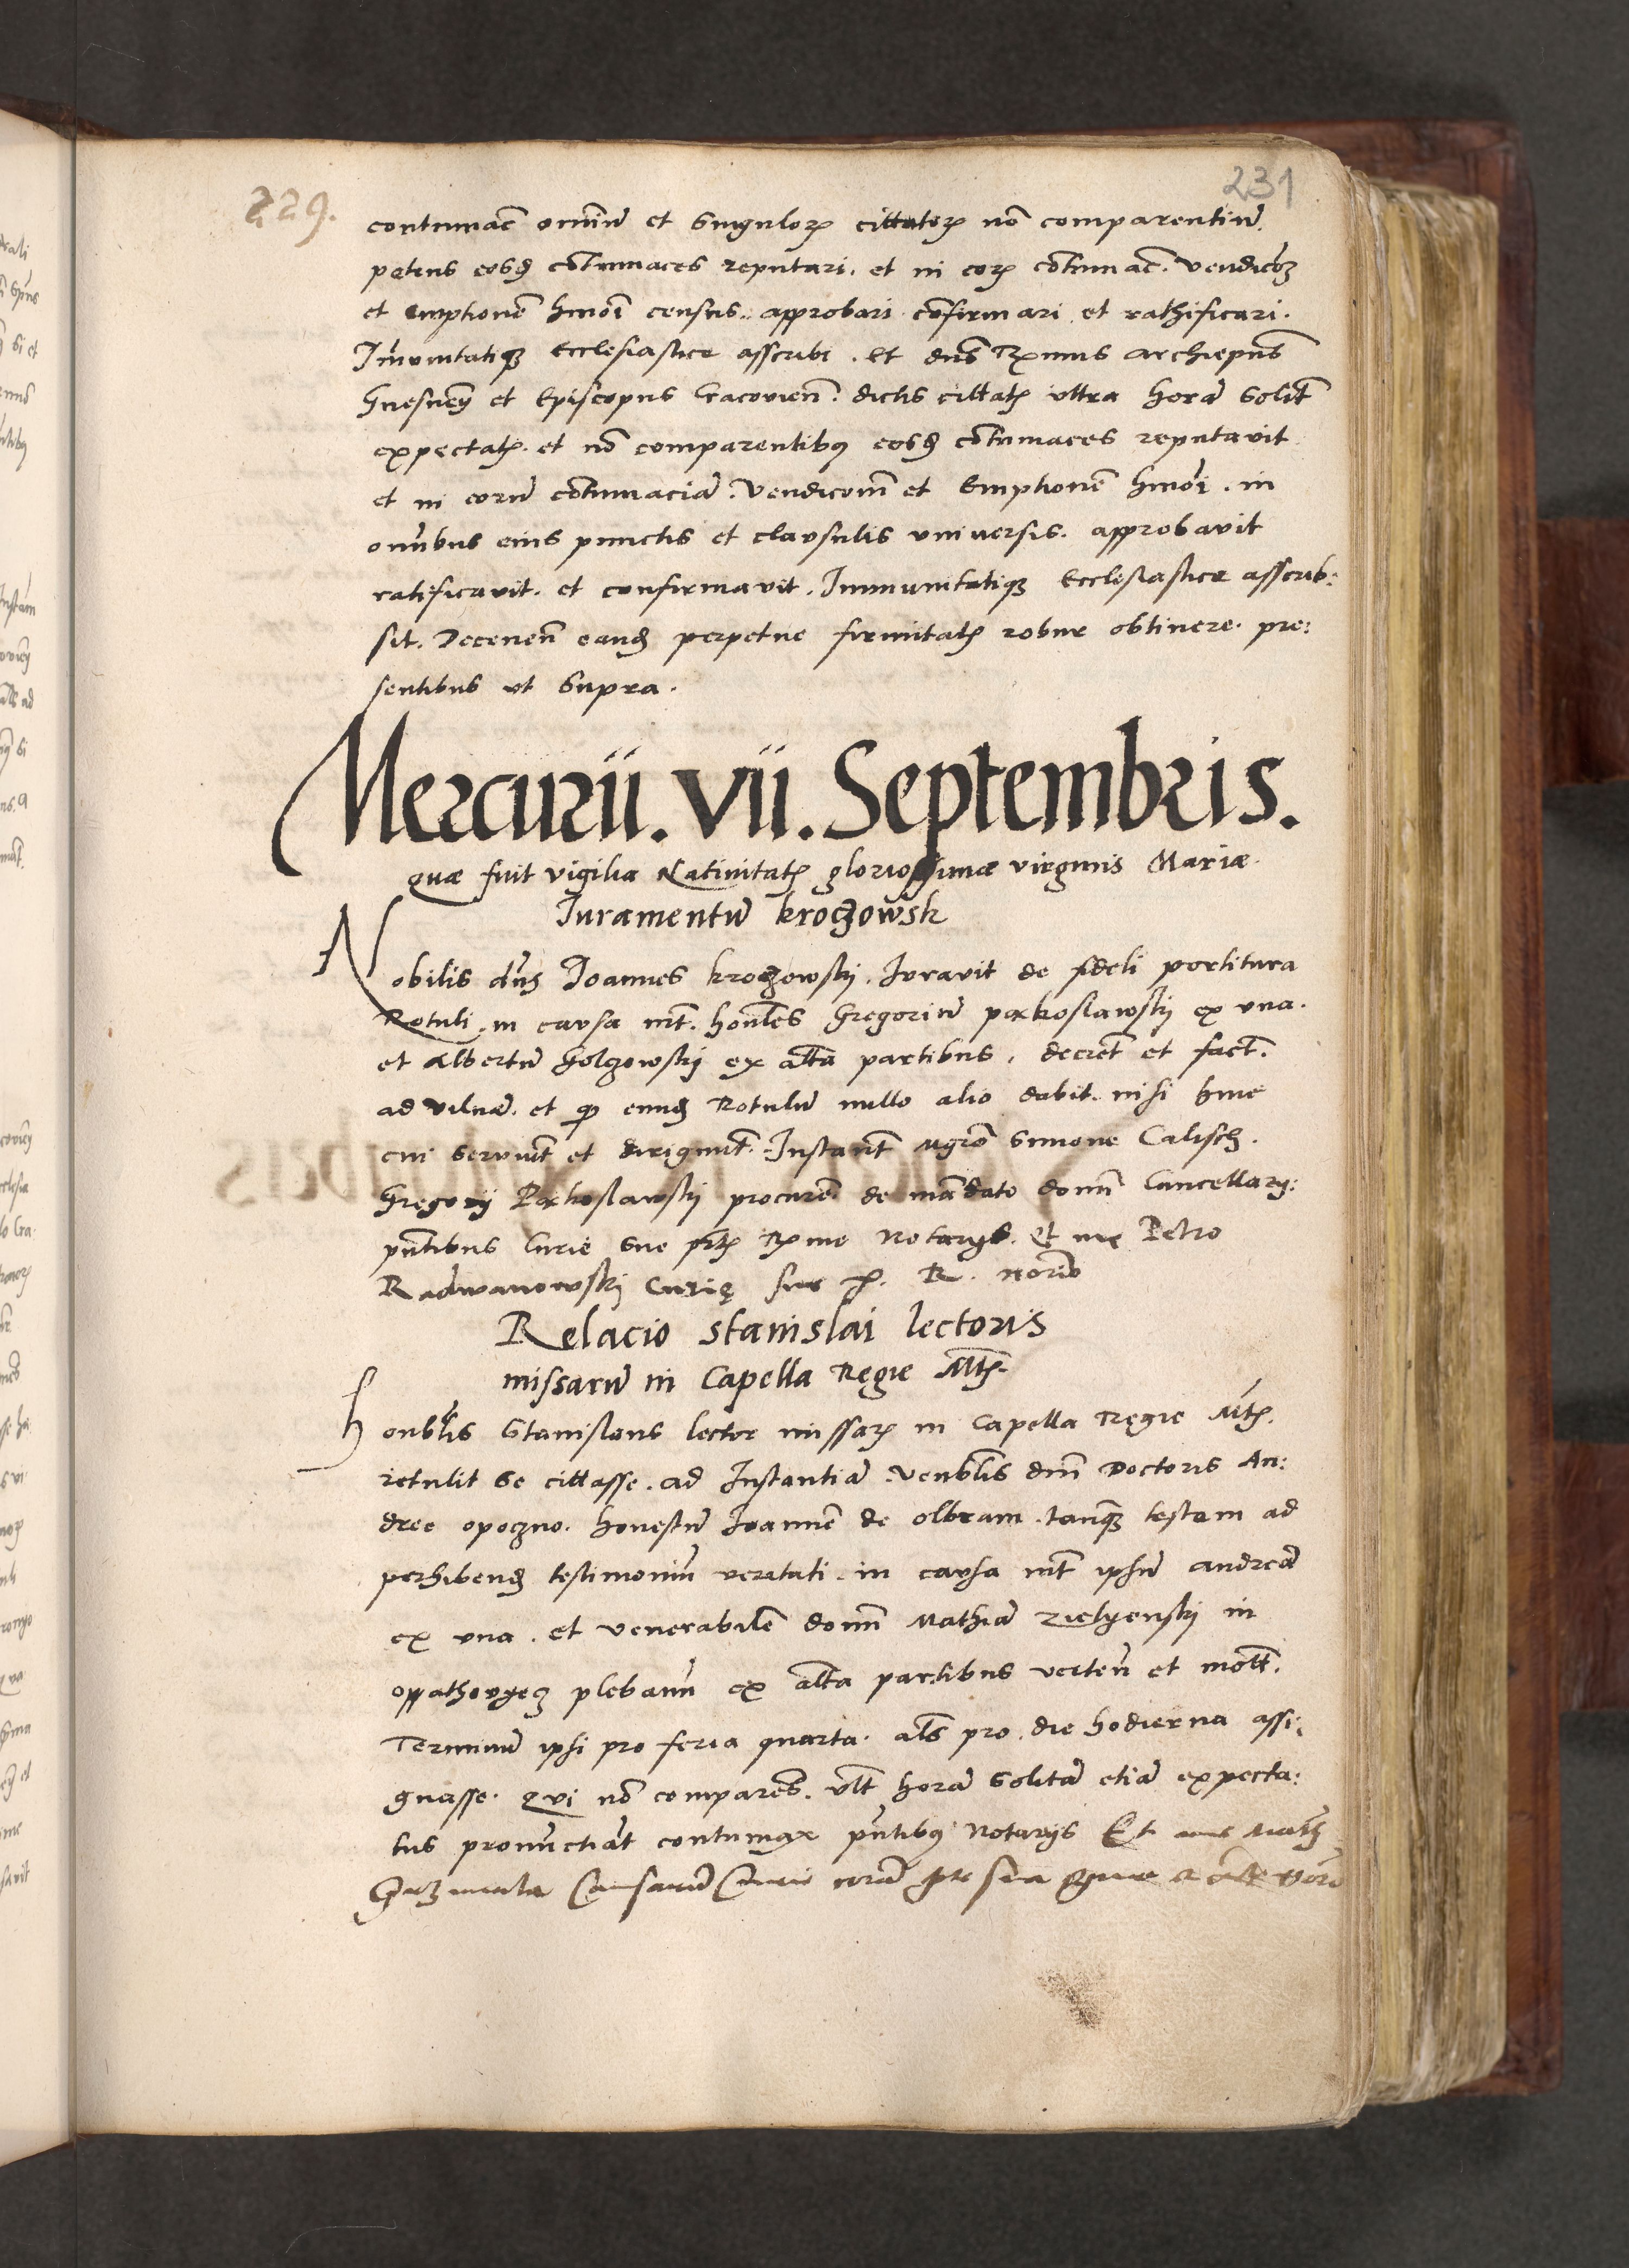 229.
231
contumac̃ omniũ et singulorꝝ cittatorꝝ nõ comparentiũ.
petens eosdꝫ cõtumaces reputari. et in eorꝝ cõtumac̃. vendicõꝫ
et emptionẽ hmõi census. approbari cõfirmari et rathificari.
Im̃unitatiqꝫ Ecclesiastice asscribi. Et dñs Rͫmus archiepũs
Gnesneñ et Episcopus Cracovieñ. dictis cittatꝭ vltra horã solit̃
expectatꝭ. et nõ comparentibꝰ eosdꝫ cõtumaces reputavit
et in eorũ cõtumaciã. Vendicom̃ et Emptionẽ hmõi. in
om̃ibus eius punctis et clausulis vniuersis. approbavit
ratificavit. et confirmavit. Immunitatiqꝫ Ecclesiastice asscrib:
sit. Decerneñ eandꝫ perpetue firmitatꝭ robur obtinere. pre:
sentibus vt supra.
Mercurii. vii. Septembris.
quæ fuit vigilia Natiuitatꝭ gloriosissimæ virginis Mariæ.
Iuramentũ kroczowsk
Nobilis dñs Joannes kroczowskij. Jvravit de fideli portitura
Rotuli. in causa int̃. honl̃es Gregoriũ parkoslawskij ex vna.
et Albertũ Golczowskij ex alt̃a partibus. decret̃ et fact̃.
ad vilnã. et qꝫ eundꝫ Rotulũ nullo alio dabit. nisi huic
cui serviunt̃ et dirigunt̃. Instant̃ Mgr̃o Simone Calisch.
Gregorij Parkoslawskij procurẽ. de mãdato domĩ Cancellarij:
pñtibus Curie sue pꝉtꝭ Rͫme Notarijs. Et me Petro
Radwanowskij Curię sue P. R. norĩo
Relacio stanislai lectoris
missarũ in Capella Regie Mt̃ꝭ.
honbl̃is Stanislaus lector missarꝝ in Capella Regie Mt̃ꝭ.
retulit se cittasse. ad Instantiã. Venbl̃is dm̃i Doctoris An:
dree opoczno. honestũ Joannẽ de olbram. tanqꝫ testem ad
perhibendꝫ testimoniũ veritati. in causa int̃ ipsũ andreã
ex vna. et venerabilẽ domĩ Mathiã zielyenskij in
oppathovyecz plebanũ ex alt̃a partibus verteñ et mott̃.
Terminũ ipsi pro feria quarta. als̃ pro die hodierna assi:
gnasse. qui nõ comparẽs. vlt̃ horã solitã etiã expecta:
tus pronũctiat̃ contumax pñtibꝰ Notarijs Et me Math
Causarũ Curie corã